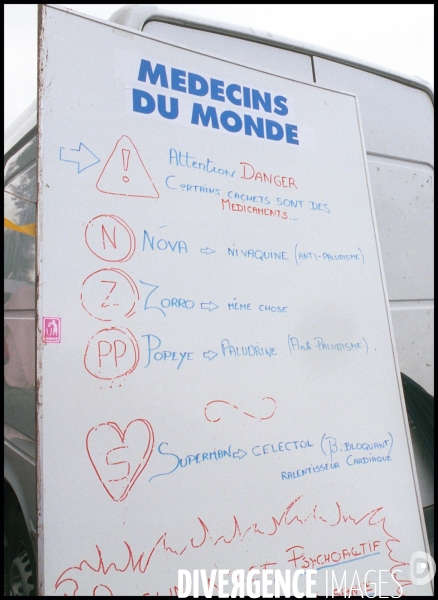 MEDECINS
DU MONDE
!
Attention DANGER
CERTAINS CACHETS SONT DES
MEDICAMENTS...
N NÓVA ⇨ NIVAQUINE (ANTI-PALUDISME)
Z ZORRO ⇨ MÊME CHOSE
PP POPEYE ⇨ PALUDRINE (Anti PALUDISME).
S SUPERMAN ⇨ CELECTOL (β. BLOQUANT)
RALENTISSEUR CARDIAQUE
PSYCHOACTIF
DIVERGENCE IMAGES